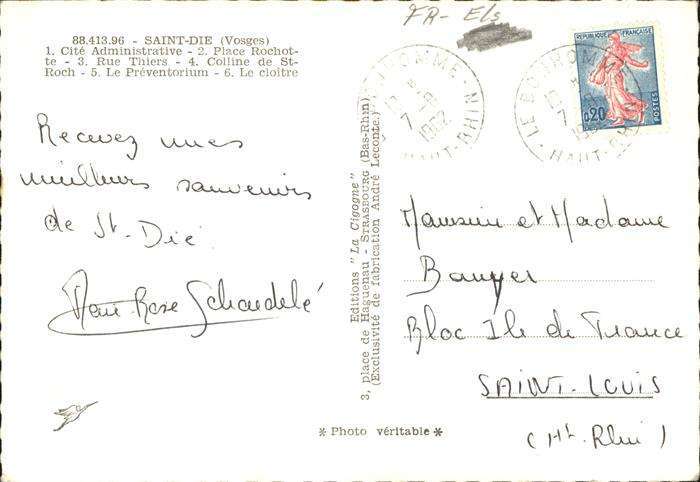 FR- Els
88.413.96 - SAINT-DIE (Vosges)
1. Cité Administrative - 2. Place Rochot-
te - 3. Rue Thiers - 4. Colline de St-
Roch - 5. Le Préventorium - 6. Le cloître
Recevez mes
meilleurs souvenirs
de St-Dié
Marie Rose
Editions "La Cigogne"
3, place de Haguenau - STRASBOURG (Bas-Rhin)
(Exclusivité de fabrication André Leconte.)
* Photo véritable *
LE BONHOMME
7 1962
HAUT-RHIN
LE BONHOMME
HAUT-RHIN
REPUBLIQUE FRANÇAISE
0,20
POSTES
Monsieur et Madame
Bloc Ile de France
SAINT-LOUIS
(Ht. Rhin)